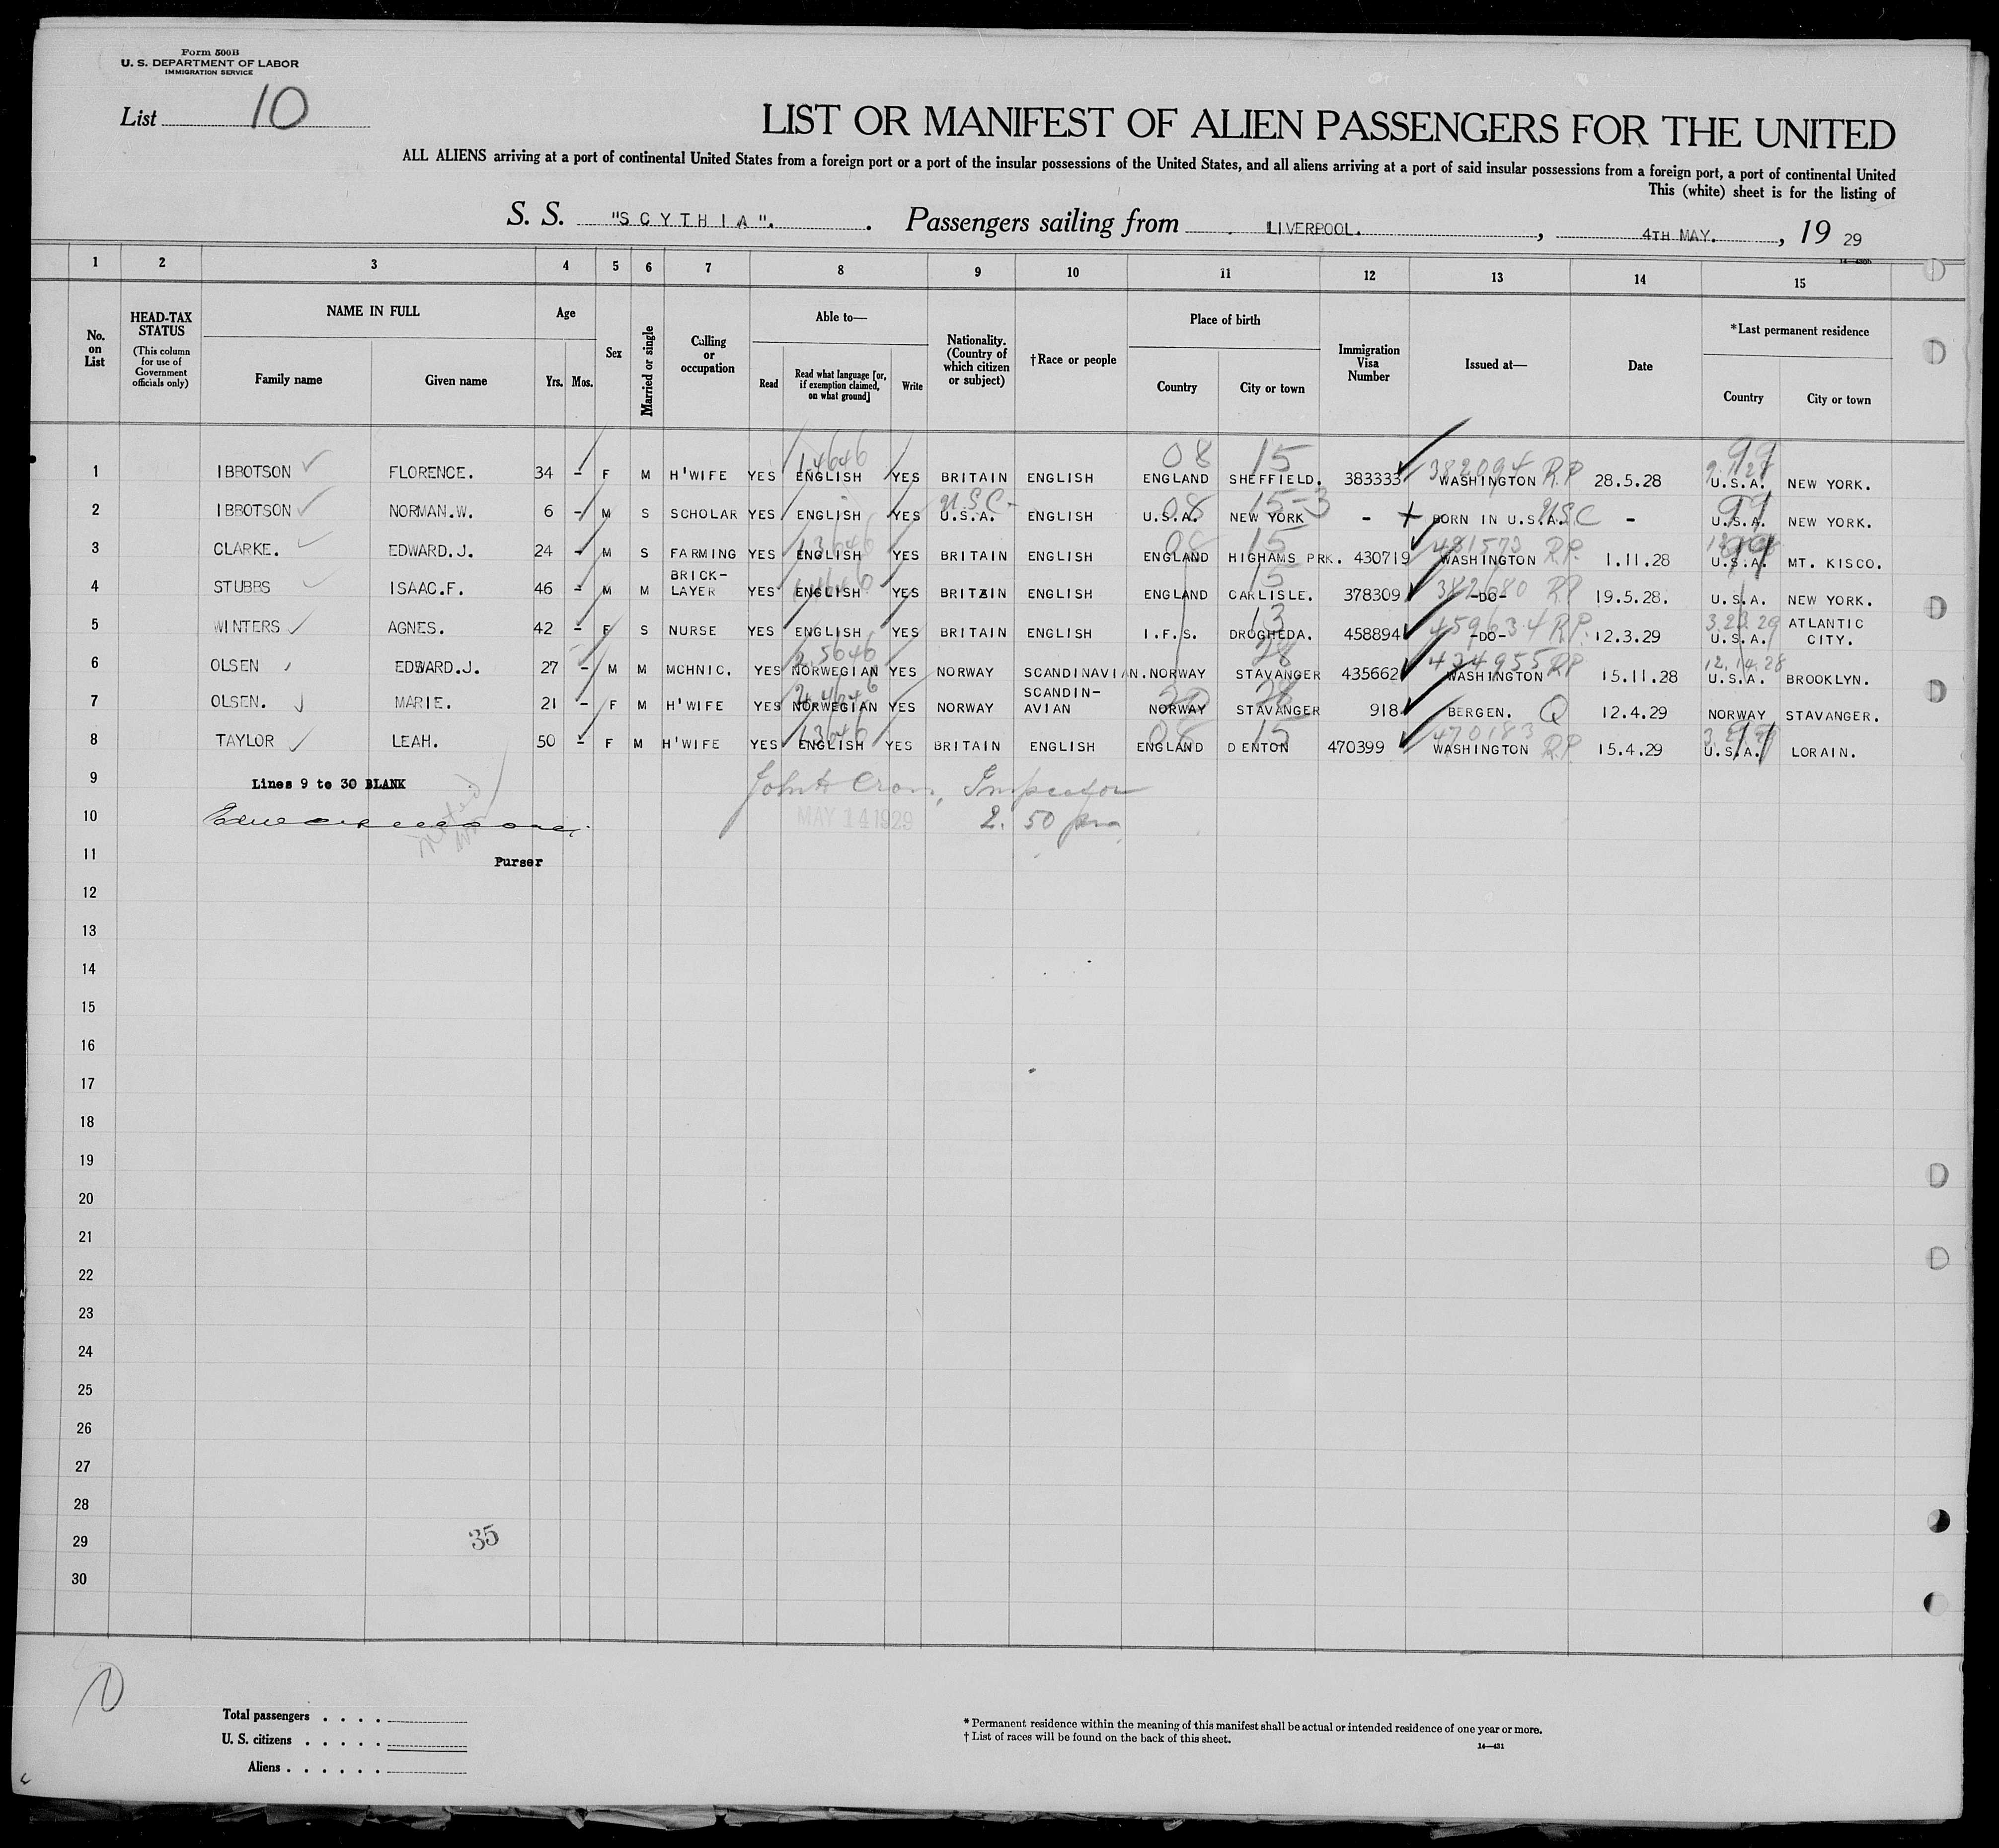 Form 500B
U. S. DEPARTMENT OF LABOR
IMMIGRATION SERVICE
List 10
LIST OR MANIFEST OF ALIEN PASSENGERS FOR THE UNITED
ALL ALIENS arriving at a port of continental United States from a foreign port or a port of the insular possessions of the United States, and all aliens arriving at a port of said insular possessions from a foreign port, a port of continental United
This (white) sheet is for the listing of
S. S. "SCYTHIA". Passengers sailing from LIVERPOOL. , 4TH MAY. , 19 29
1 2 3 4 5 6 7 8 9 10 11 12 13 14 15
No. on List
HEAD-TAX STATUS
(This column for use of Government officials only)
NAME IN FULL
Family name Given name
Age
Yrs. Mos.
Sex
Married or single
Calling or occupation
Able to—
Read
Read what language [or, if exemption claimed, on what ground]
Write
Nationality. (Country of which citizen or subject)
†Race or people
Place of birth
Country City or town
Immigration Visa Number
Issued at—
Date
*Last permanent residence
Country City or town
1 IBBOTSON FLORENCE. 34 - F M H'WIFE YES ENGLISH YES BRITAIN ENGLISH ENGLAND SHEFFIELD. 383333 382094 R.P WASHINGTON 28.5.28 U.S.A. NEW YORK.
2 IBBOTSON NORMAN.W. 6 - M S SCHOLAR YES ENGLISH YES U.S.C. U.S.A. ENGLISH U.S.A. NEW YORK - BORN IN U.S.A. USC - U.S.A. NEW YORK.
3 CLARKE. EDWARD.J. 24 - M S FARMING YES ENGLISH YES BRITAIN ENGLISH ENGLAND HIGHAMS PRK. 430719 431573 R.P. WASHINGTON 1.11.28 U.S.A. MT. KISCO.
4 STUBBS ISAAC.F. 46 - M M BRICK-LAYER YES ENGLISH YES BRITAIN ENGLISH ENGLAND CARLISLE. 378309 RP -DO- 19.5.28. U.S.A. NEW YORK.
5 WINTERS AGNES. 42 - F S NURSE YES ENGLISH YES BRITAIN ENGLISH I.F.S. DROGHEDA. 458894 459634 R.P. -DO- 12.3.29 3.23.29 U.S.A. ATLANTIC CITY.
6 OLSEN EDWARD.J. 27 - M M MCHNIC. YES NORWEGIAN YES NORWAY SCANDINAVIAN. NORWAY STAVANGER 435662 434955 RP WASHINGTON 15.11.28 12.14.28 U.S.A. BROOKLYN.
7 OLSEN. MARIE. 21 - F M H'WIFE YES NORWEGIAN YES NORWAY SCANDIN-AVIAN NORWAY STAVANGER 918 BERGEN. Q 12.4.29 NORWAY STAVANGER.
8 TAYLOR LEAH. 50 - F M H'WIFE YES ENGLISH YES BRITAIN ENGLISH ENGLAND DENTON 470399 470183 RP WASHINGTON 15.4.29 U.S.A. LORAIN.
9 Lines 9 to 30 BLANK
Inspector
10 MAY 14 1929 2. 50 pm
11 Purser
12
13
14
15
16
17
18
19
20
21
22
23
24
25
26
27
28
29 35
30
10
Total passengers . . . .
U. S. citizens . . . . .
Aliens . . . . . .
* Permanent residence within the meaning of this manifest shall be actual or intended residence of one year or more.
† List of races will be found on the back of this sheet.
14—431